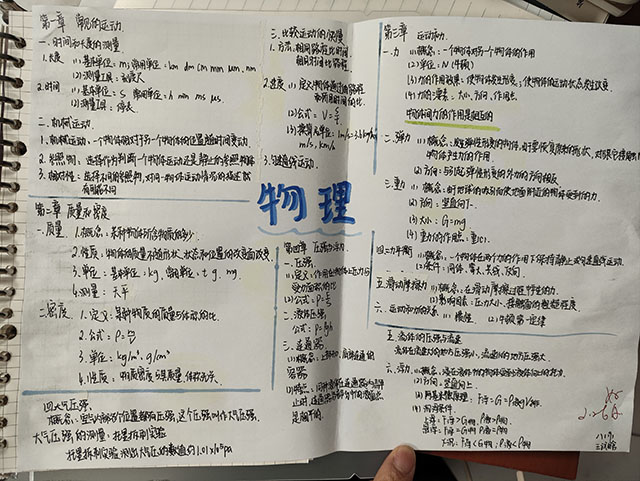 第一章 常见的运动.
一.时间和长度的测量
1.长度 (1)基本单位：m；常用单位：km dm cm mm μm. nm
(2)测量工具：刻度尺
2.时间 (1)基本单位：s 常用单位：h min ms μs.
(2)测量工具：停表
二.机械运动.
1.机械运动：一个物体相对于另一个物体的位置随时间变动.
2.参照物：选择作为判断一个物体运动还是静止的参照物体
3.相对性：选择不同的参照物，对同一物体运动情况的描述就
有可能不同
三.比较运动的快慢
1.方法：相同路程比时间
相同时间比路程
2.速度 (1)定义：物体通过的路程
与所用时间的比.
(2)公式：V=s/t
(3)换算及单位：1m/s=3.6km/h
m/s, km/h
3.
第二章 质量和密度
一.质量 1.概念：某种物体所含物质的多少.
2.性质：物体的质量不随形状、状态和位置的改变而改变
3.单位：基本单位：kg，常用单位：t g. mg
4.测量：天平
二.密度 1.定义：某种物质的质量与体积的比.
2.公式：ρ=m/V
3.单位：kg/m³、g/cm³
4.性质：物质密度与其质量、体积无关.
物理
第四章 压强与浮力.
一.压强
1.定义：作用在物体上压力与
受力面积的比
(2)公式：P=F/S
二.液体压强
公式：P=ρgh
三.连通器
(1)概念：上端开口，底部连通的
容器
四.大气压强.
1.概念：空气内部各个位置都有压强，这个压强叫作大气压强.
大气压强的测量：托里拆利实验
托里拆利实验测出大气压的数值约1.01×10⁵pa
第三章 运动和力.
一.力 (1)概念：一个物体对另一个物体的作用
(2)单位：N (牛顿)
(3)力的作用效果：使物体发生形变；使物体的运动状态发生改变.
(4)力的三要素：大小、方向、作用点.
物体间力的作用是相互的
二.弹力 (1)概念：发生弹性形变的物体，由于要恢复原来的形状，对跟它接触的
物体产生力的作用.
(2)方向：与引起弹性形变的外力的方向相反
三.重力 (1)概念：由地球的吸引而使地面附近的物体受到的力.
(2)方向：竖直向下.
(3)大小：G=mg
(4)重力的作用点：重心.
四.二力平衡 (1)概念：一个物体在两个力的作用下保持静止或匀速直线运动.
(2)条件：同体、等大、共线、反向.
五.滑动摩擦力 (1)概念：在滑动摩擦过程中产生的力.
(2)影响因素：压力大小、接触面的粗糙程度.
六.运动和力的关系 (1)惯性 (2)牛顿第一定律
五.流体的压强与流速
流体在流速大的地方压强小，流速小的地方压强大.
六.浮力.
(2)方向：竖直向上.
(3)阿基米德原理：F浮=G=ρ液gV排
(4)浮沉条件.
上浮：F浮>G物，ρ液>ρ物.
悬浮：F浮=G物 ρ液=ρ物
下沉：F浮<G物；ρ液<ρ物